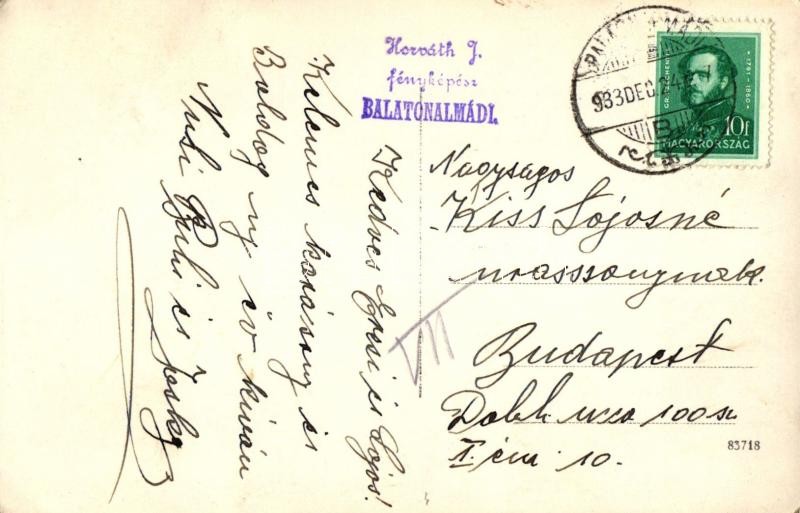 Horváth J.
fényképész
BALATONALMÁDI.
Kedves Ercsi és Lajos!
Kelemes karácsony és
Boldog uj év kiván
Nusi Bubi és Joska
933 DEC. 24
GR. SZÉCHENYI
1791-1860
10f
MAGYARORSZÁG
Nagyságos
Kiss Lajosné
urasszonynak.
Budapest
Dob ucca 100 sz
I. em 10.
VII
83718